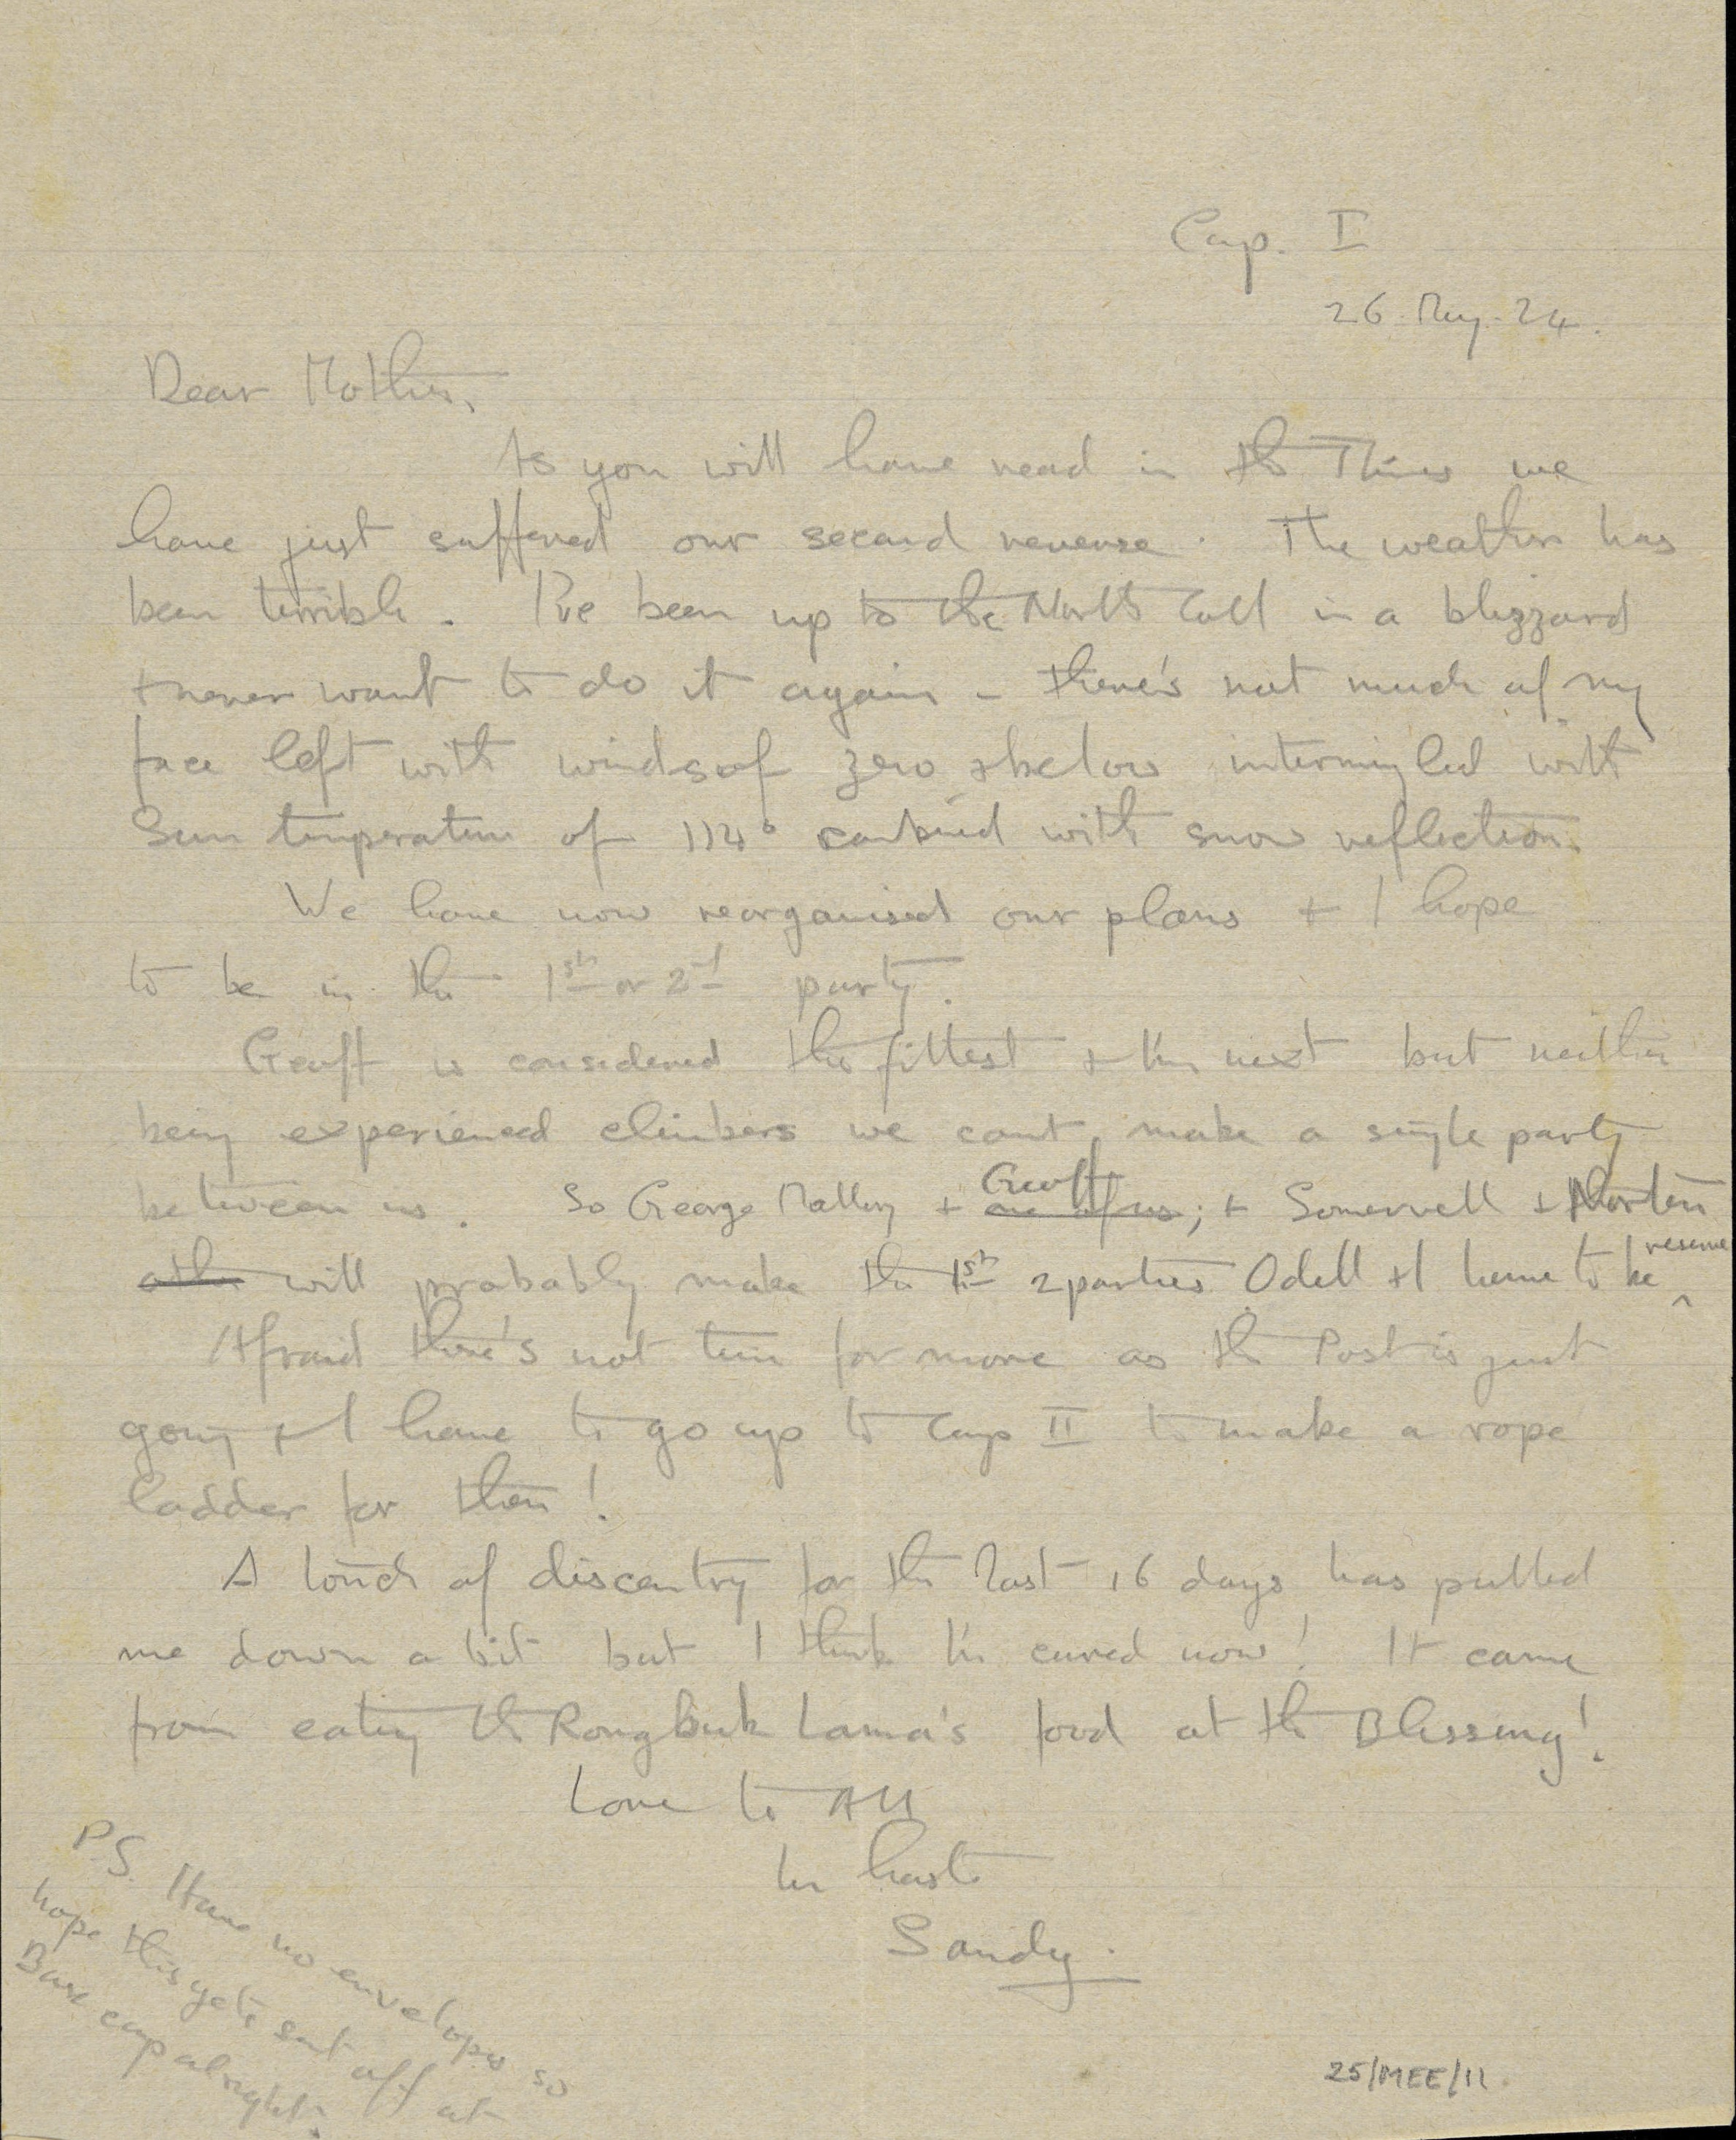 Camp. I
26. May. 24.
Dear Mother,
As you will have read in the Times we
have just suffered our second reverse. The weather has
been terrible. I've been up to the North Coll in a blizzard
+ never want to do it again - there's not much of my
face left with winds of zero + below intermingled with
Sun temperature of 114° combined with snow reflection.
We have now reorganised our plans + I hope
to be in the 1st or 2nd party.
Geoff is considered the fittest + I'm next but neither
being experienced climbers we cant make a single party
between us. So George Mallory + one of us Geoff; + Somervell + Norton
other will probably make the 1st 2 parties Odell + I have to be reserve
Afraid there's not time for more as the Post is just
going + I have to go up to Camp II to make a rope
ladder for them!
A touch of discentry for the last 16 days has pulled
me down a bit but I think I'm cured now! It came
from eating the Rongbuk Lama's food at the Blessing!
Love to All
In haste
Sandy.
P.S. Have no envelopes so
hope this gets sent off at
Base camp alright.
25/MEE/11